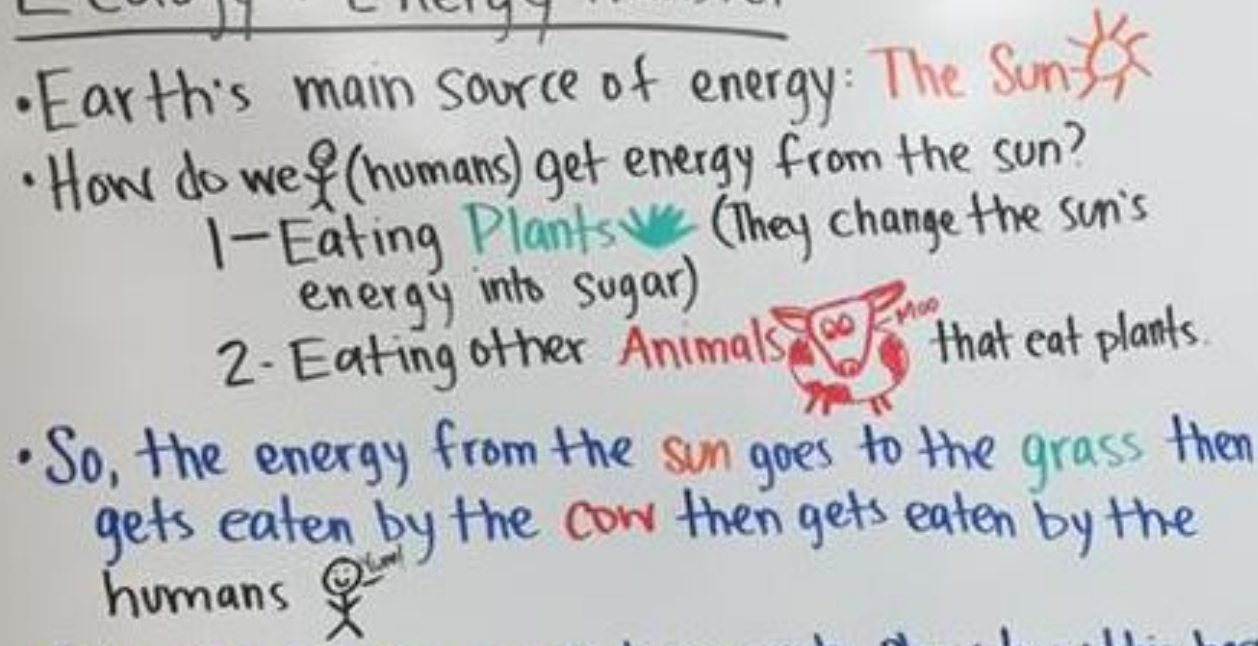 Ecology - Energy Transfer
• Earth's main source of energy: The Sun
• How do we (humans) get energy from the sun?
1- Eating Plants (They change the sun's
energy into sugar)
2- Eating other Animals Moo that eat plants.
• So, the energy from the sun goes to the grass then
gets eaten by the cow then gets eaten by the
humans Yum!